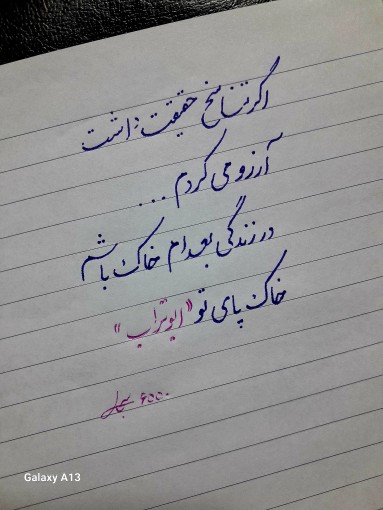 اگر تناسخ حقیقت داشت
آرزو می کردم ...
در زندگی بعدام خاک باشم
خاک پای تو «ابوتراب»
Galaxy A13